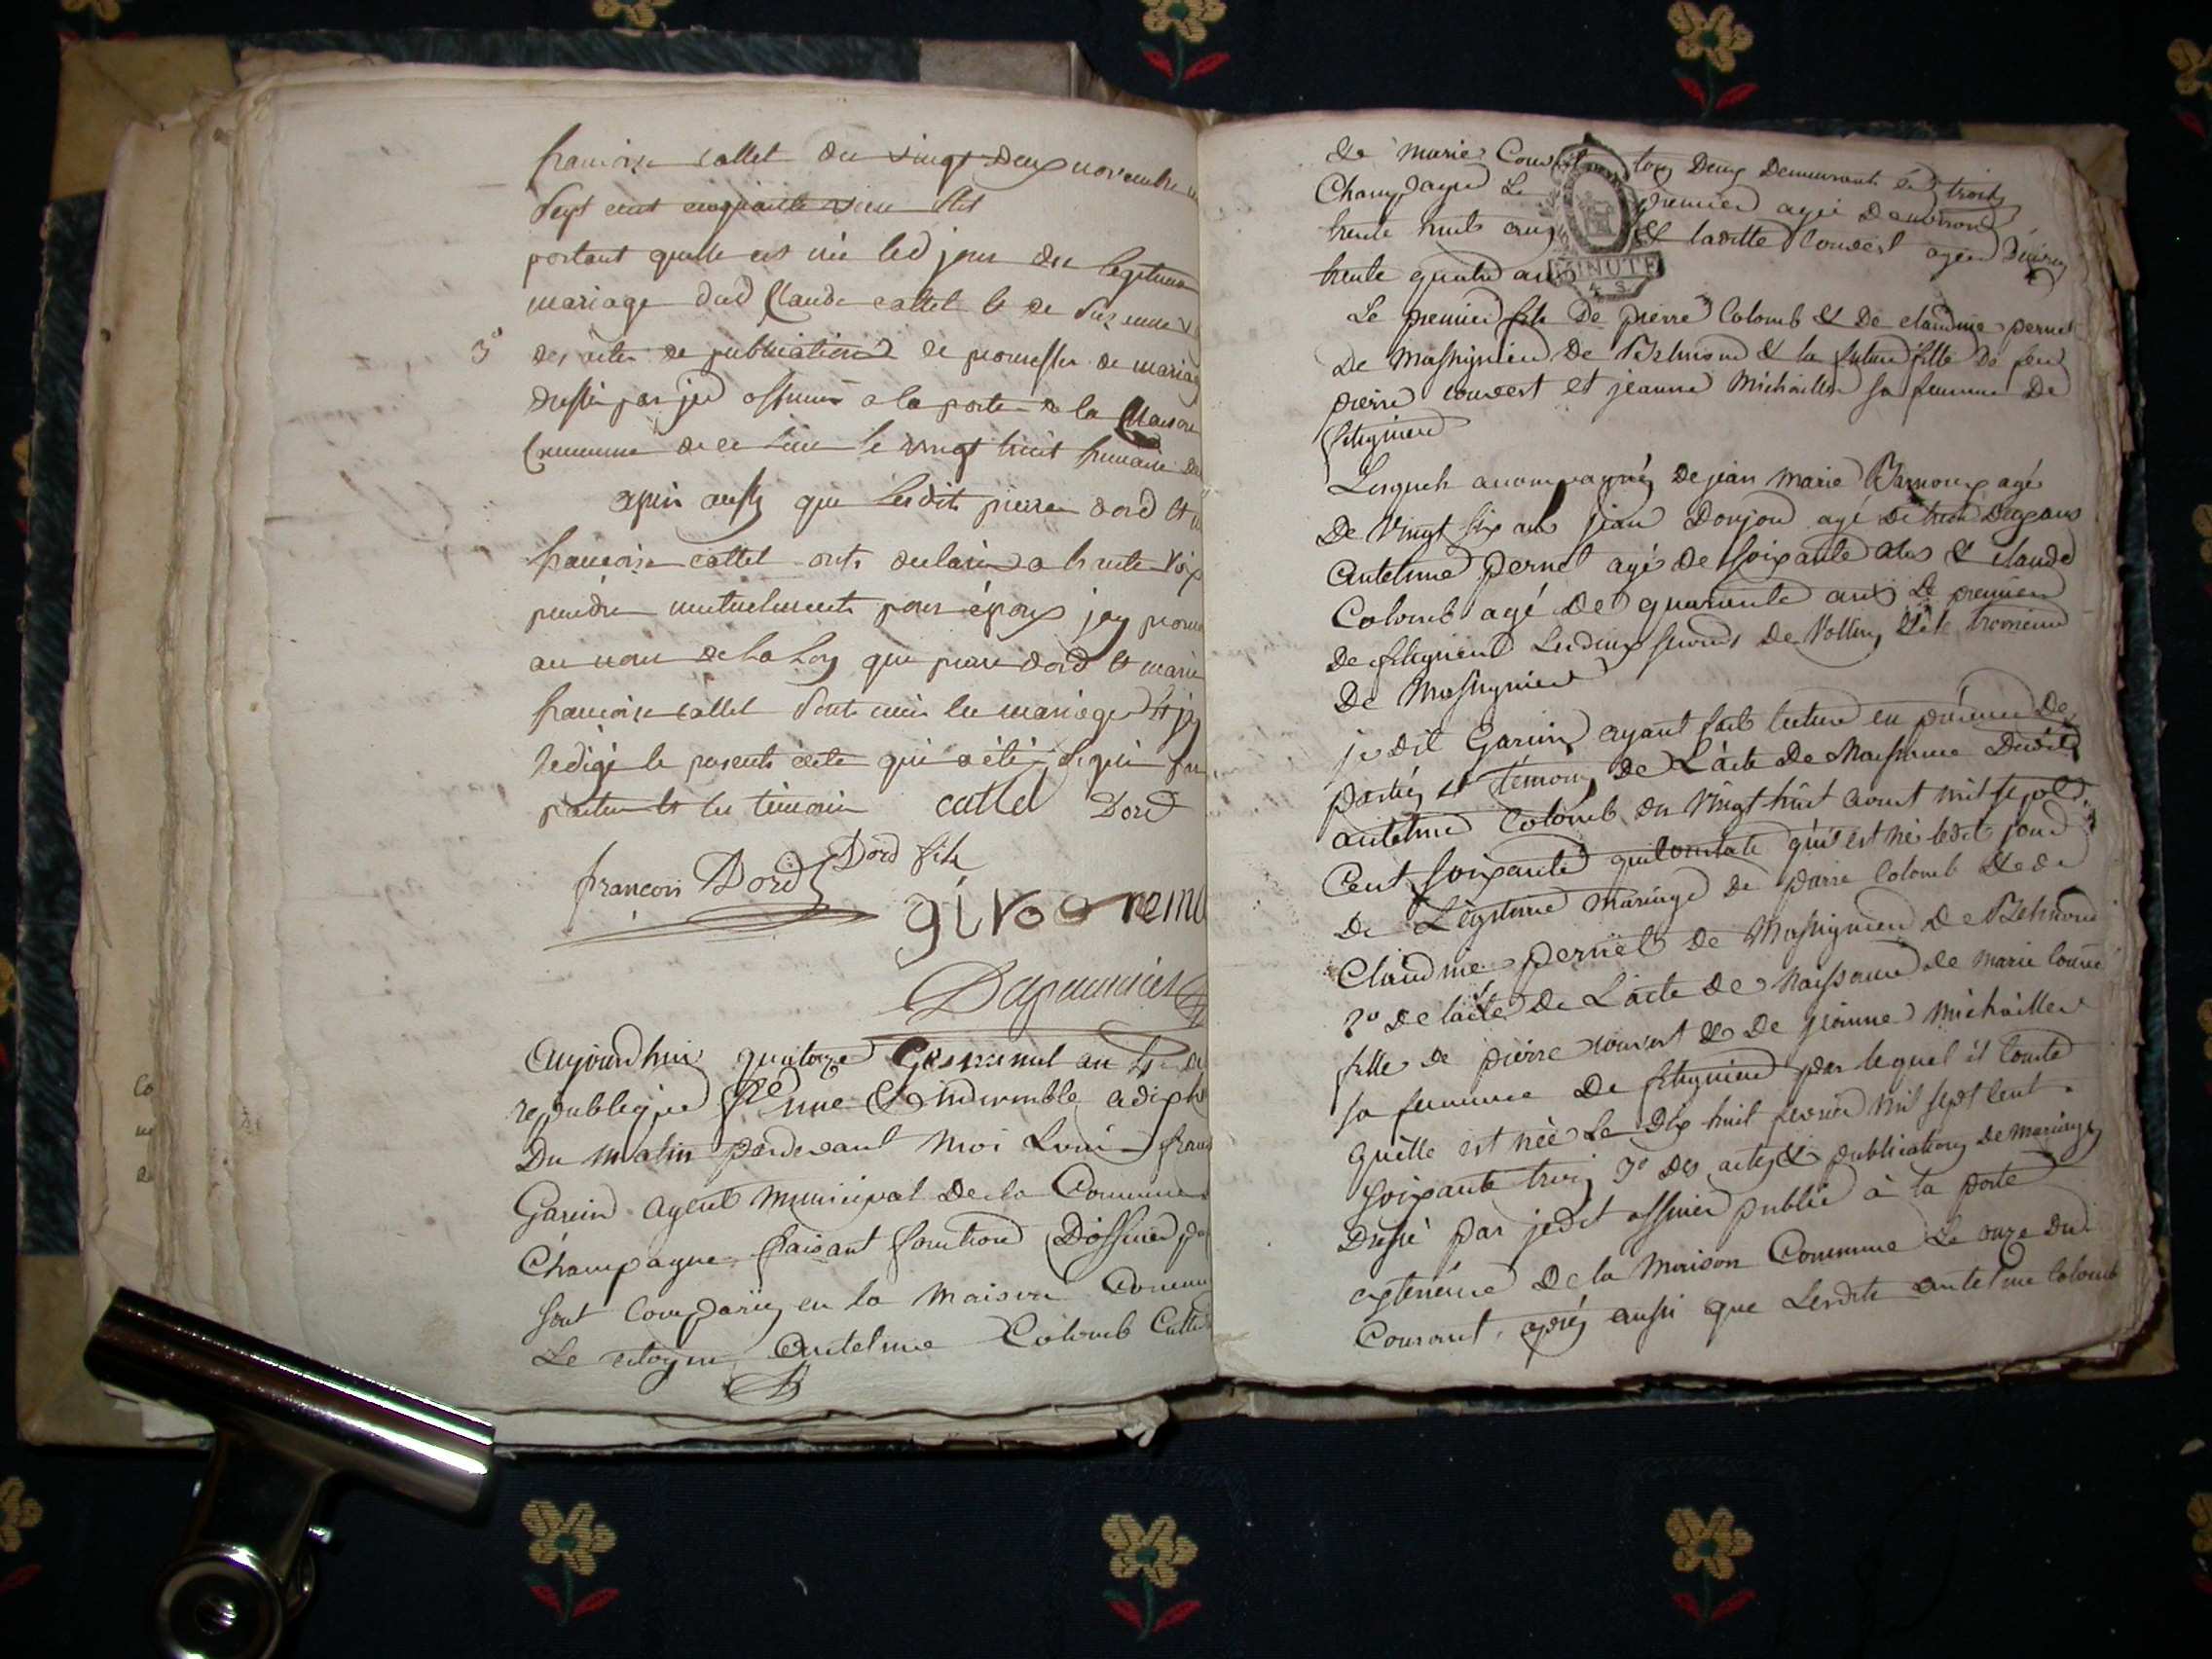 françoise cattet du vingt deux novembre
sept cent cinquante
portant quelle est née led jour du legitime
mariage dud Claude cattet & de
3° des actes de publication de promesse de mariage
dressée par jed officier a la porte de la Maison
Commune de ce lieu le vingt huit frimaire
apres aussy que lesdits pierre dord et
françoise cattet onts declaré a haute voix
prendre mutuelement pour époux jay
au nom de la Loy que pierre dord et marie
françoise cattet sont unis en mariage et jay
redigé le presents acte qui a été signé
parties et les temoins cattet Dord
françois Dord Dord fils
givo
Aujourdhuy quatorze Germinal an 4e
republique une & indivisible a dix h
Du matin pardevant moi Louis
Garin agent municipal De la Commune
Champagne faisant fonction D'officier
sont comparus en la maison Commu
Le citoyen antelme Colomb Cult
de marie Couvert tous Deux Demeurants
Champagne Le premier agé Denviron
trente huit ans & laditte Couvert agée D'environ
trente quatre ans
MINUTE
Le premier fils De pierre Colomb & De claudine pernet
De Massignieu De Belmond & la future fille De feu
pierre couvert et jeanne Michailler sa femme De
fitignieu
Lesquels accompagnés De jean marie agé
De Vingt six ans jean Donjon agé De trente Deux ans
antelme pernet agé De soixante ans & claude
Colomb agé De quarante ans Le premier
De fitignieu Les deux seconds De & le troisieme
De Massignieu
je dit Garin, ayant fait lecture en présence De
parties et témoins De L'acte De Naissance Dudit
antelme Colomb du Vingt huit aout mil sept
Cent soixante qui constate qu'il est né ledit jour
De Légitime mariage De pierre Colomb & de
Claudine pernet De Massignieu De Belmond
2° De L'acte de naissance de marie couvert
fille De pierre couvert & De jeanne michailler
sa femme De fitignieu par lequel il conste
quelle est née Le Dix huit fevrier mil sept cent
soixante trois 3° Des actes & publications De mariage
Dressé par jedit officier public à la porte
exterieure De la Maison Commune Le onze Du
Courant, après aussi que Lesdits antelme Colomb